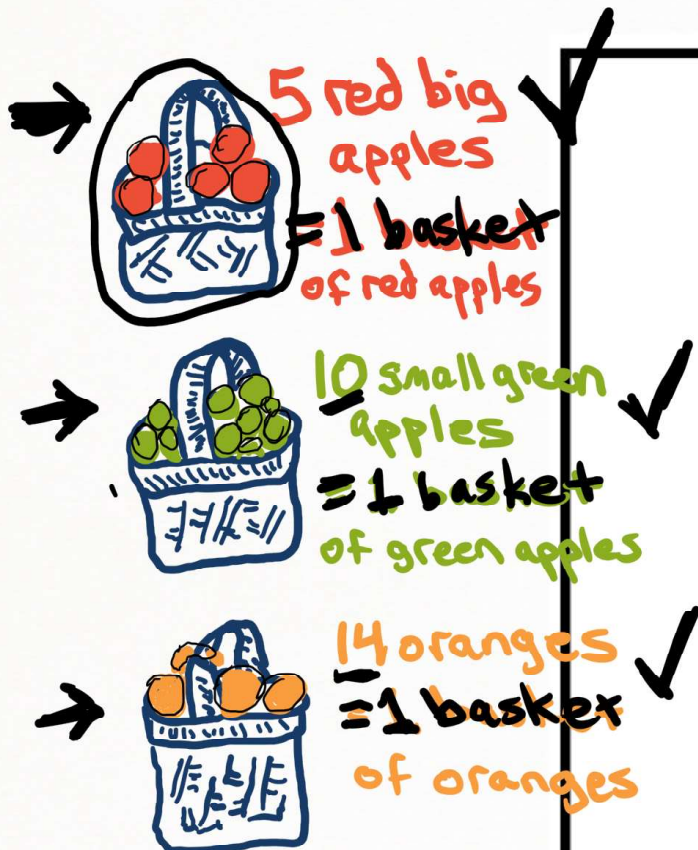 5 red big
apples
= 1 basket
of red apples
10 small green
apples
= 1 basket
of green apples
14 oranges
= 1 basket
of oranges